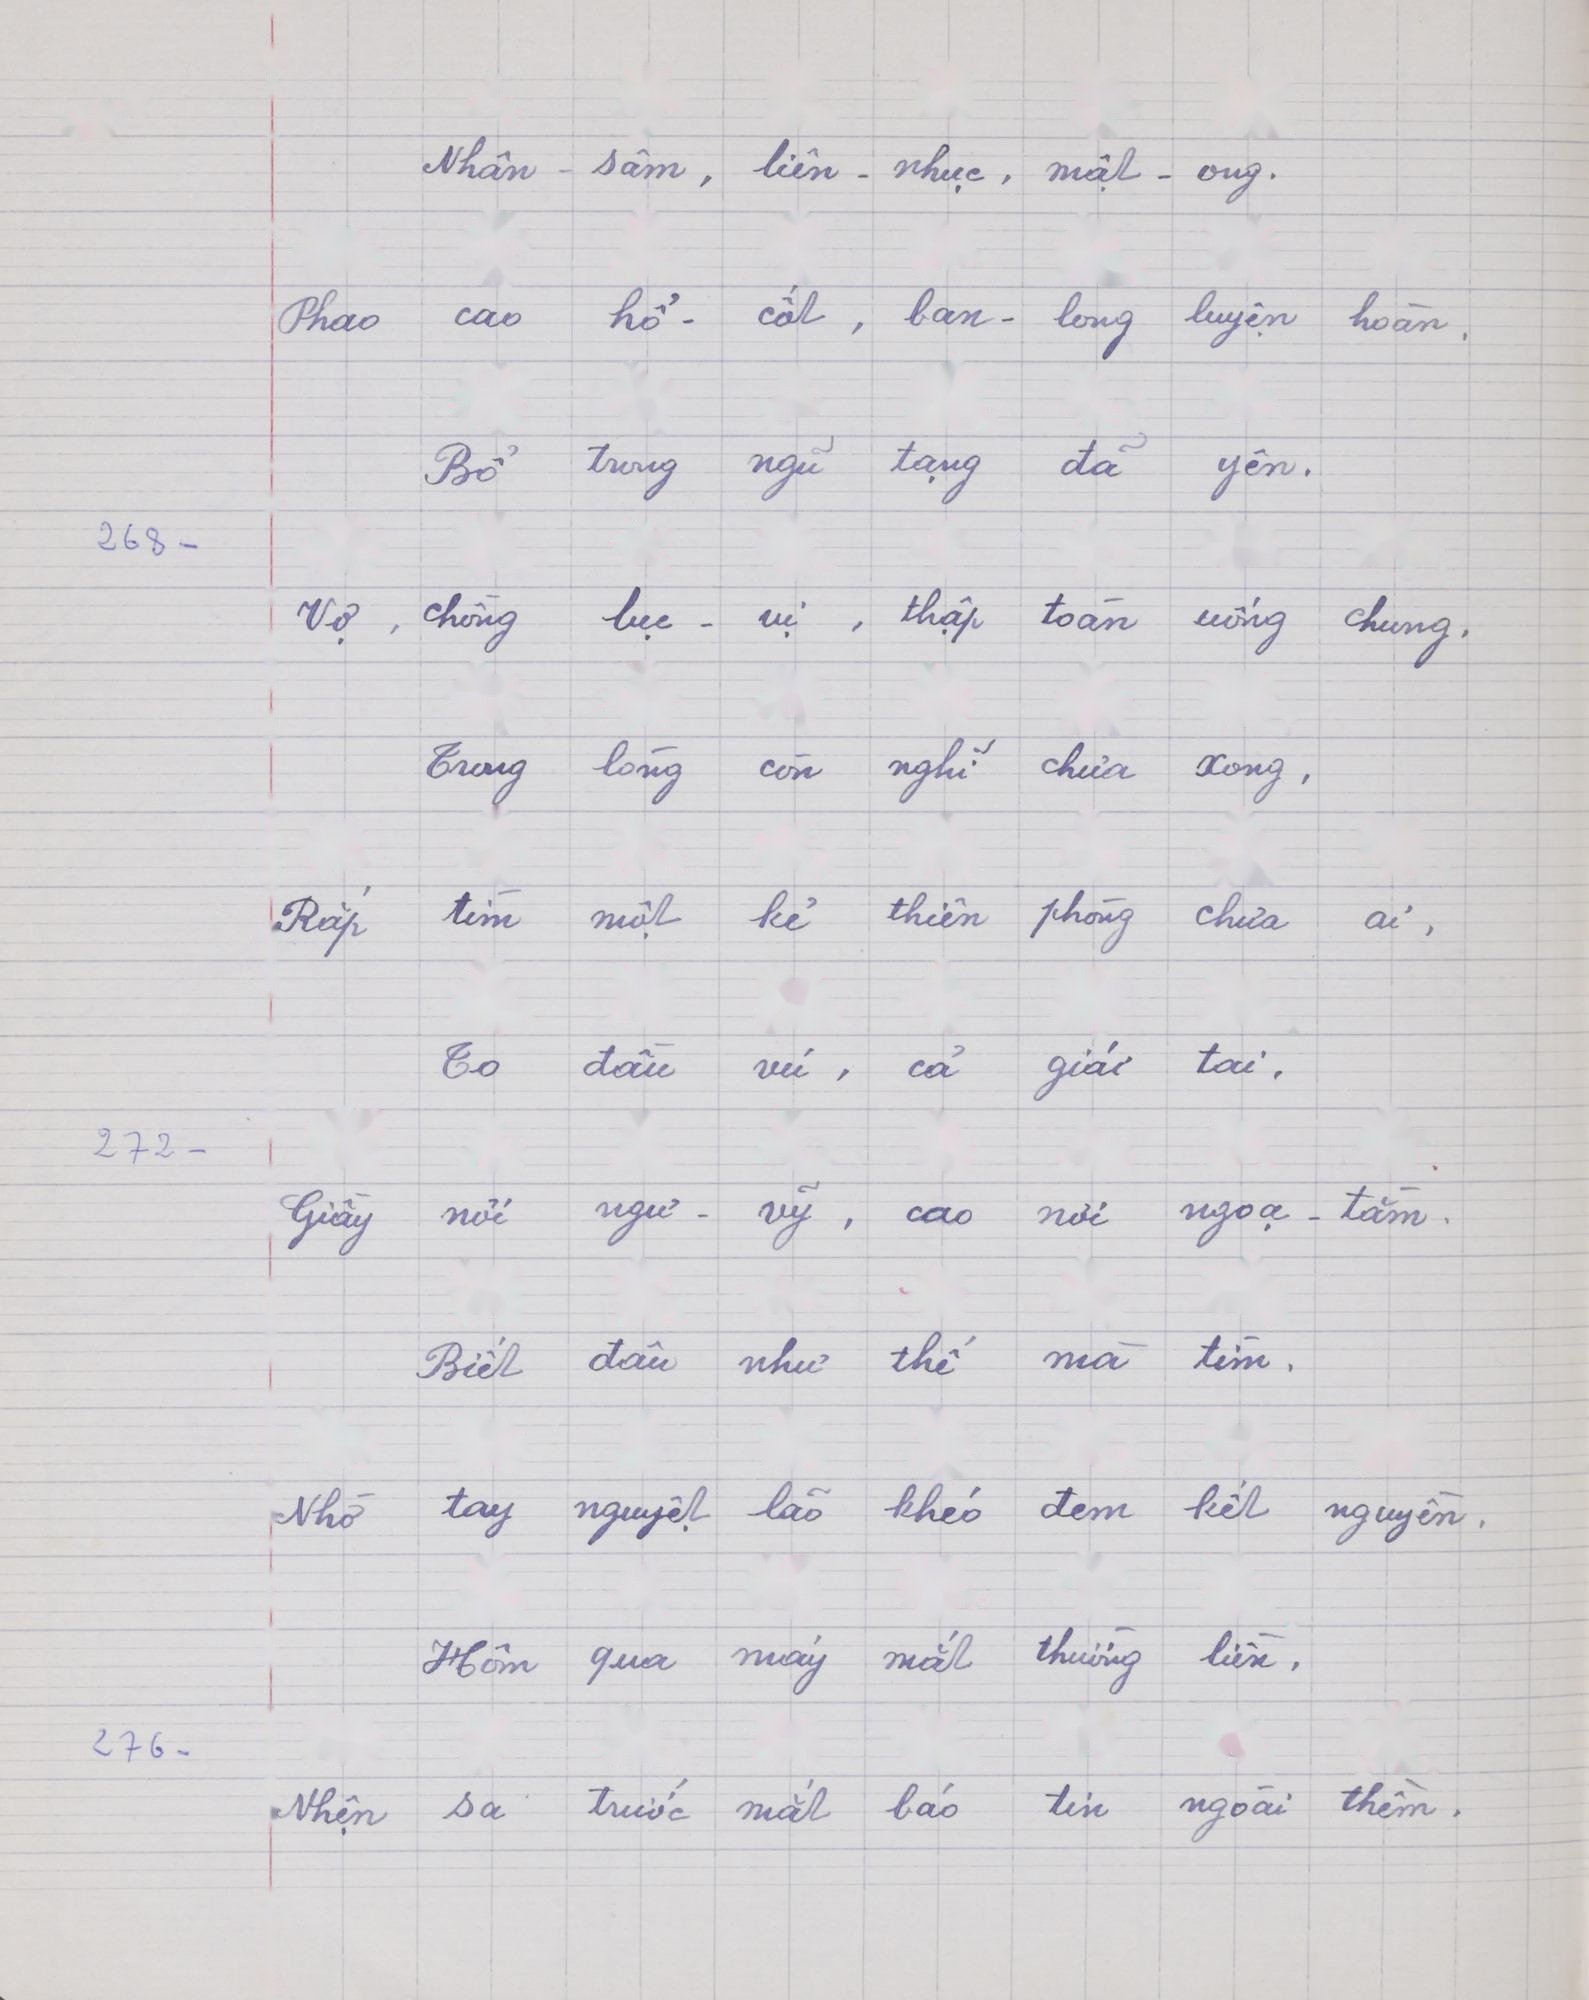 Nhân - sâm, liên - nhục, mật - ong.
Phao cao hổ - cốt, ban - long luyện hoàn.
Bổ trung ngũ tạng đã yên.
268 -
Vợ, chồng lục - vị, thập toàn uống chung.
Trong lòng còn nghĩ chưa xong,
Rắp tìm một kẻ thiên phòng chửa ai,
To đầu vú, cả giái tai.
272 -
Giầy nơi ngư - vỹ, cao nơi ngoạ - tằm.
Biết đâu như thế mà tìm.
Nhờ tay nguyệt lão khéo đem kết nguyền.
Hôm qua máy mắt thường liền,
276 -
Nhện sa trước mắt báo tin ngoài thềm.